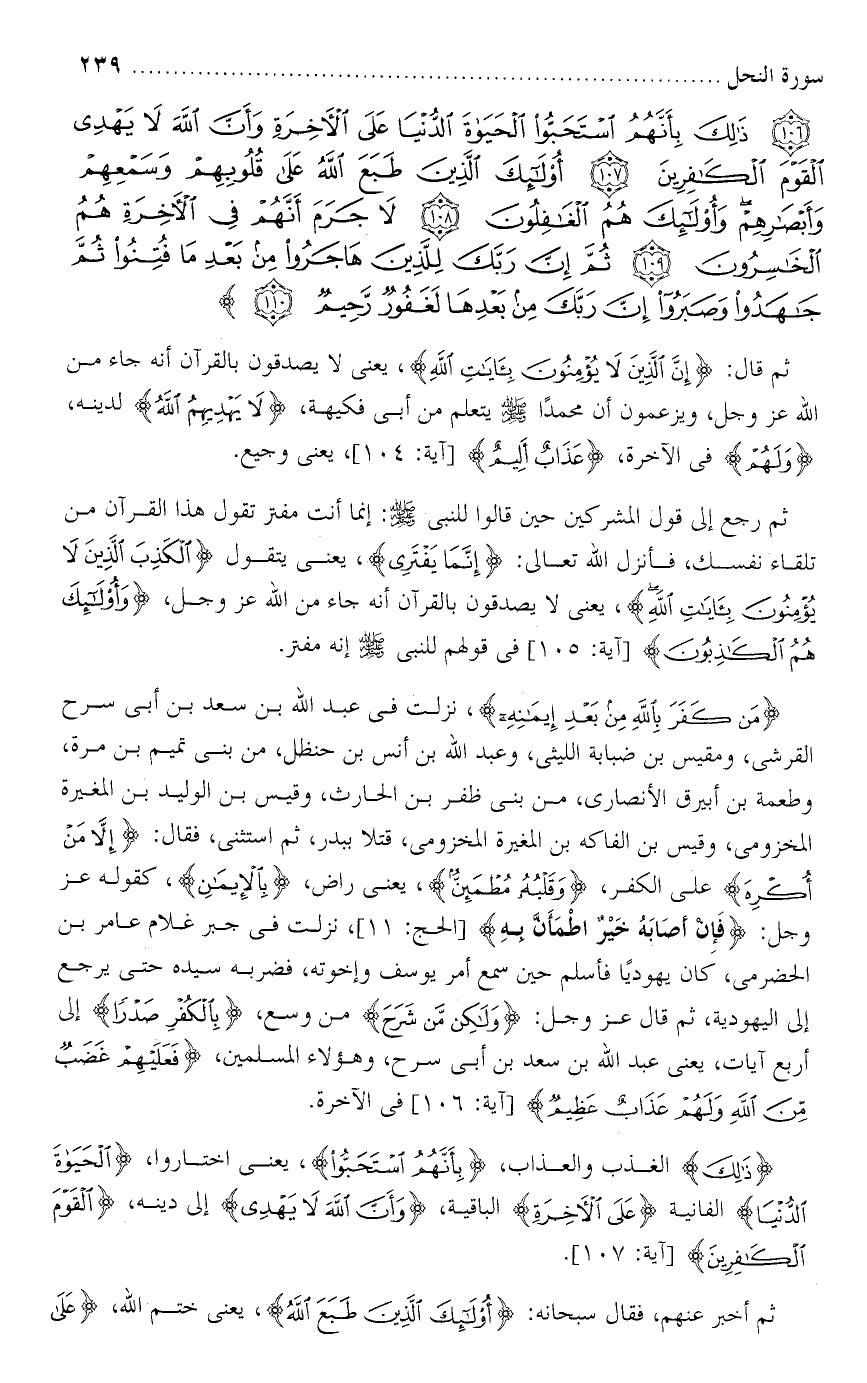 سورة النحل ........................................................................ ٢٣٩
﴿١٠٦﴾ ذَٰلِكَ بِأَنَّهُمُ ٱسْتَحَبُّوا۟ ٱلْحَيَوٰةَ ٱلدُّنْيَا عَلَى ٱلْءَاخِرَةِ وَأَنَّ ٱللَّهَ لَا يَهْدِى
ٱلْقَوْمَ ٱلْكَٰفِرِينَ ﴿١٠٧﴾ أُو۟لَٰٓئِكَ ٱلَّذِينَ طَبَعَ ٱللَّهُ عَلَىٰ قُلُوبِهِمْ وَسَمْعِهِمْ
وَأَبْصَٰرِهِمْ ۖ وَأُو۟لَٰٓئِكَ هُمُ ٱلْغَٰفِلُونَ ﴿١٠٨﴾ لَا جَرَمَ أَنَّهُمْ فِى ٱلْءَاخِرَةِ هُمُ
ٱلْخَٰسِرُونَ ﴿١٠٩﴾ ثُمَّ إِنَّ رَبَّكَ لِلَّذِينَ هَاجَرُوا۟ مِنۢ بَعْدِ مَا فُتِنُوا۟ ثُمَّ
جَٰهَدُوا۟ وَصَبَرُوٓا۟ إِنَّ رَبَّكَ مِنۢ بَعْدِهَا لَغَفُورٌ رَّحِيمٌ ﴿١١٠﴾ ﴾
ثم قال: ﴿إِنَّ ٱلَّذِينَ لَا يُؤْمِنُونَ بِـَٔايَٰتِ ٱللَّهِ﴾، يعنى لا يصدقون بالقرآن أنه جاء من
الله عز وجل، ويزعمون أن محمدًا ﷺ يتعلم من أبى فكيهة، ﴿لَا يَهْدِيهِمُ ٱللَّهُ﴾ لدينه،
﴿وَلَهُمْ﴾ فى الآخرة، ﴿عَذَابٌ أَلِيمٌ﴾ [آية: ١٠٤]، يعنى وجيع.
ثم رجع إلى قول المشركين حين قالوا للنبى ﷺ: إنما أنت مفتر تقول هذا القرآن من
تلقاء نفسك، فأنزل الله تعالى: ﴿إِنَّمَا يَفْتَرِى﴾، يعنى يتقول ﴿ٱلْكَذِبَ ٱلَّذِينَ لَا
يُؤْمِنُونَ بِـَٔايَٰتِ ٱللَّهِ ۖ﴾، يعنى لا يصدقون بالقرآن أنه جاء من الله عز وجل، ﴿وَأُو۟لَٰٓئِكَ
هُمُ ٱلْكَٰذِبُونَ﴾ [آية: ١٠٥] فى قولهم للنبى ﷺ إنه مفتر.
﴿مَن كَفَرَ بِٱللَّهِ مِنۢ بَعْدِ إِيمَٰنِهِۦٓ﴾، نزلت فى عبد الله بن سعد بن أبى سرح
القرشى، ومقيس بن ضبابة الليثى، وعبد الله بن أنس بن حنظل، من بنى تميم بن مرة،
وطعمة بن أبيرق الأنصارى، من بنى ظفر بن الحارث، وقيس بن الوليد بن المغيرة
المخزومى، وقيس بن الفاكه بن المغيرة المخزومى، قتلا ببدر، ثم استثنى، فقال: ﴿إِلَّا مَنْ
أُكْرِهَ﴾ على الكفر، ﴿وَقَلْبُهُۥ مُطْمَئِنٌّۢ﴾، يعنى راض، ﴿بِٱلْإِيمَٰنِ﴾، كقوله عز
وجل: ﴿فَإِنْ أصَابَهُ خَيْرٌ اطْمَأَنَّ بِهِ﴾ [الحج: ١١]، نزلت فى جبر غلام عامر بن
الحضرمى، كان يهوديًا فأسلم حين سمع أمر يوسف وإخوته، فضربه سيده حتى يرجع
إلى اليهودية، ثم قال عز وجل: ﴿وَلَٰكِن مَّن شَرَحَ﴾ من وسع، ﴿بِٱلْكُفْرِ صَدْرًا﴾ إلى
أربع آيات، يعنى عبد الله بن سعد بن أبى سرح، وهؤلاء المسلمين، ﴿فَعَلَيْهِمْ غَضَبٌ
مِّنَ ٱللَّهِ وَلَهُمْ عَذَابٌ عَظِيمٌ﴾ [آية: ١٠٦] فى الآخرة.
﴿ذَٰلِكَ﴾ الغذب والعذاب، ﴿بِأَنَّهُمُ ٱسْتَحَبُّوا۟﴾، يعنى اختاروا، ﴿ٱلْحَيَوٰةَ
ٱلدُّنْيَا﴾ الفانية ﴿عَلَى ٱلْءَاخِرَةِ﴾ الباقية، ﴿وَأَنَّ ٱللَّهَ لَا يَهْدِى﴾ إلى دينه، ﴿ٱلْقَوْمَ
ٱلْكَٰفِرِينَ﴾ [آية: ١٠٧].
ثم أخبر عنهم، فقال سبحانه: ﴿أُو۟لَٰٓئِكَ ٱلَّذِينَ طَبَعَ ٱللَّهُ﴾، يعنى ختم الله، ﴿عَلَىٰ